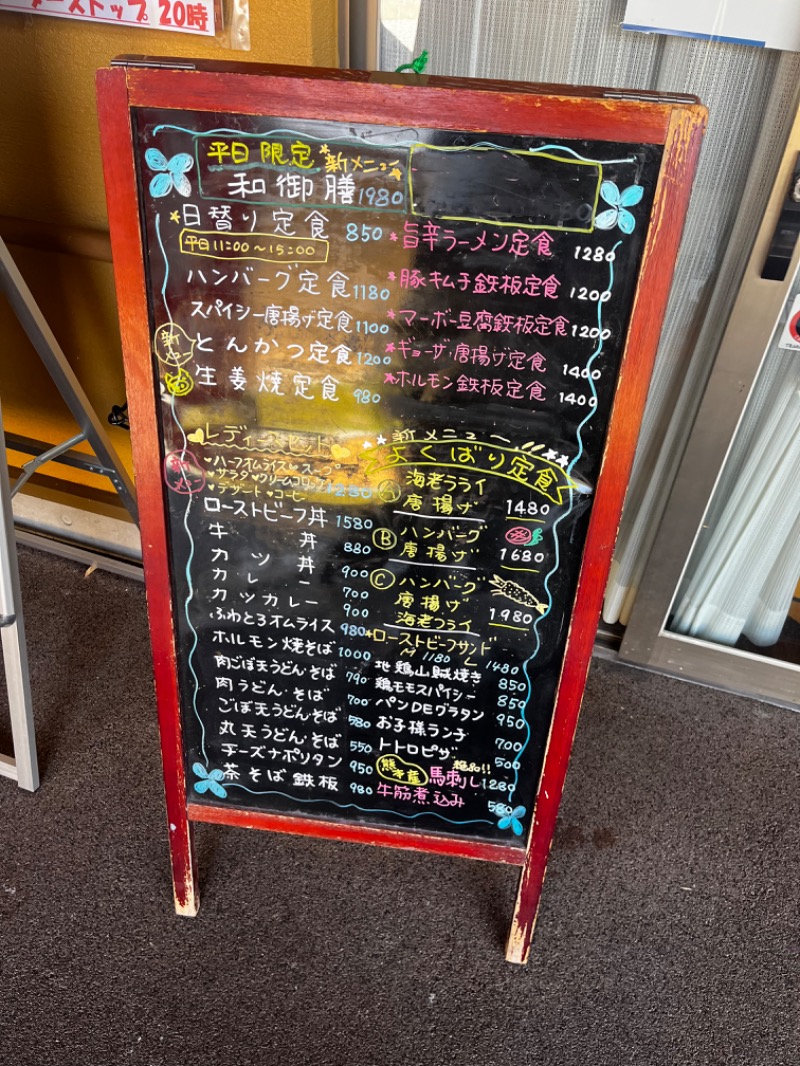 ーストップ 20時
平日限定 新メニュー
和御膳 1980
日替り定食 850
平日11:00〜15:00
ハンバーグ定食 1180
スパイシー唐揚げ定食 1100
とんかつ定食 1200
生姜焼定食 980
旨辛ラーメン定食 1280
豚キムチ鉄板定食 1200
マーボー豆腐鉄板定食 1200
ギョーザ・唐揚げ定食 1400
ホルモン鉄板定食 1400
レディースセット
ハーフオムライス スープ
サラダ クリームコロッケ
デザート コーヒー 1280
ローストビーフ丼 1580
牛丼 880
カツ丼 900
カレー 700
カツカレー 900
ふわとろオムライス 980
ホルモン焼そば 1000
肉ごぼ天うどん・そば 790
肉うどん・そば 700
ごぼ天うどん・そば 580
丸天うどん・そば 550
チーズナポリタン 950
茶そば鉄板 980
新メニュー
よくばり定食
A 海老フライ
唐揚げ 1480
B ハンバーグ
唐揚げ 1680
C ハンバーグ
唐揚げ
海老フライ 1980
ローストビーフサンド
M 1180 L 1480
地鶏山賊焼き 850
鶏モモスパイシー 850
パンDEグラタン 950
お子様ランチ 700
トトロピザ 500
熊本産 馬刺し 1280
牛筋煮込み 580